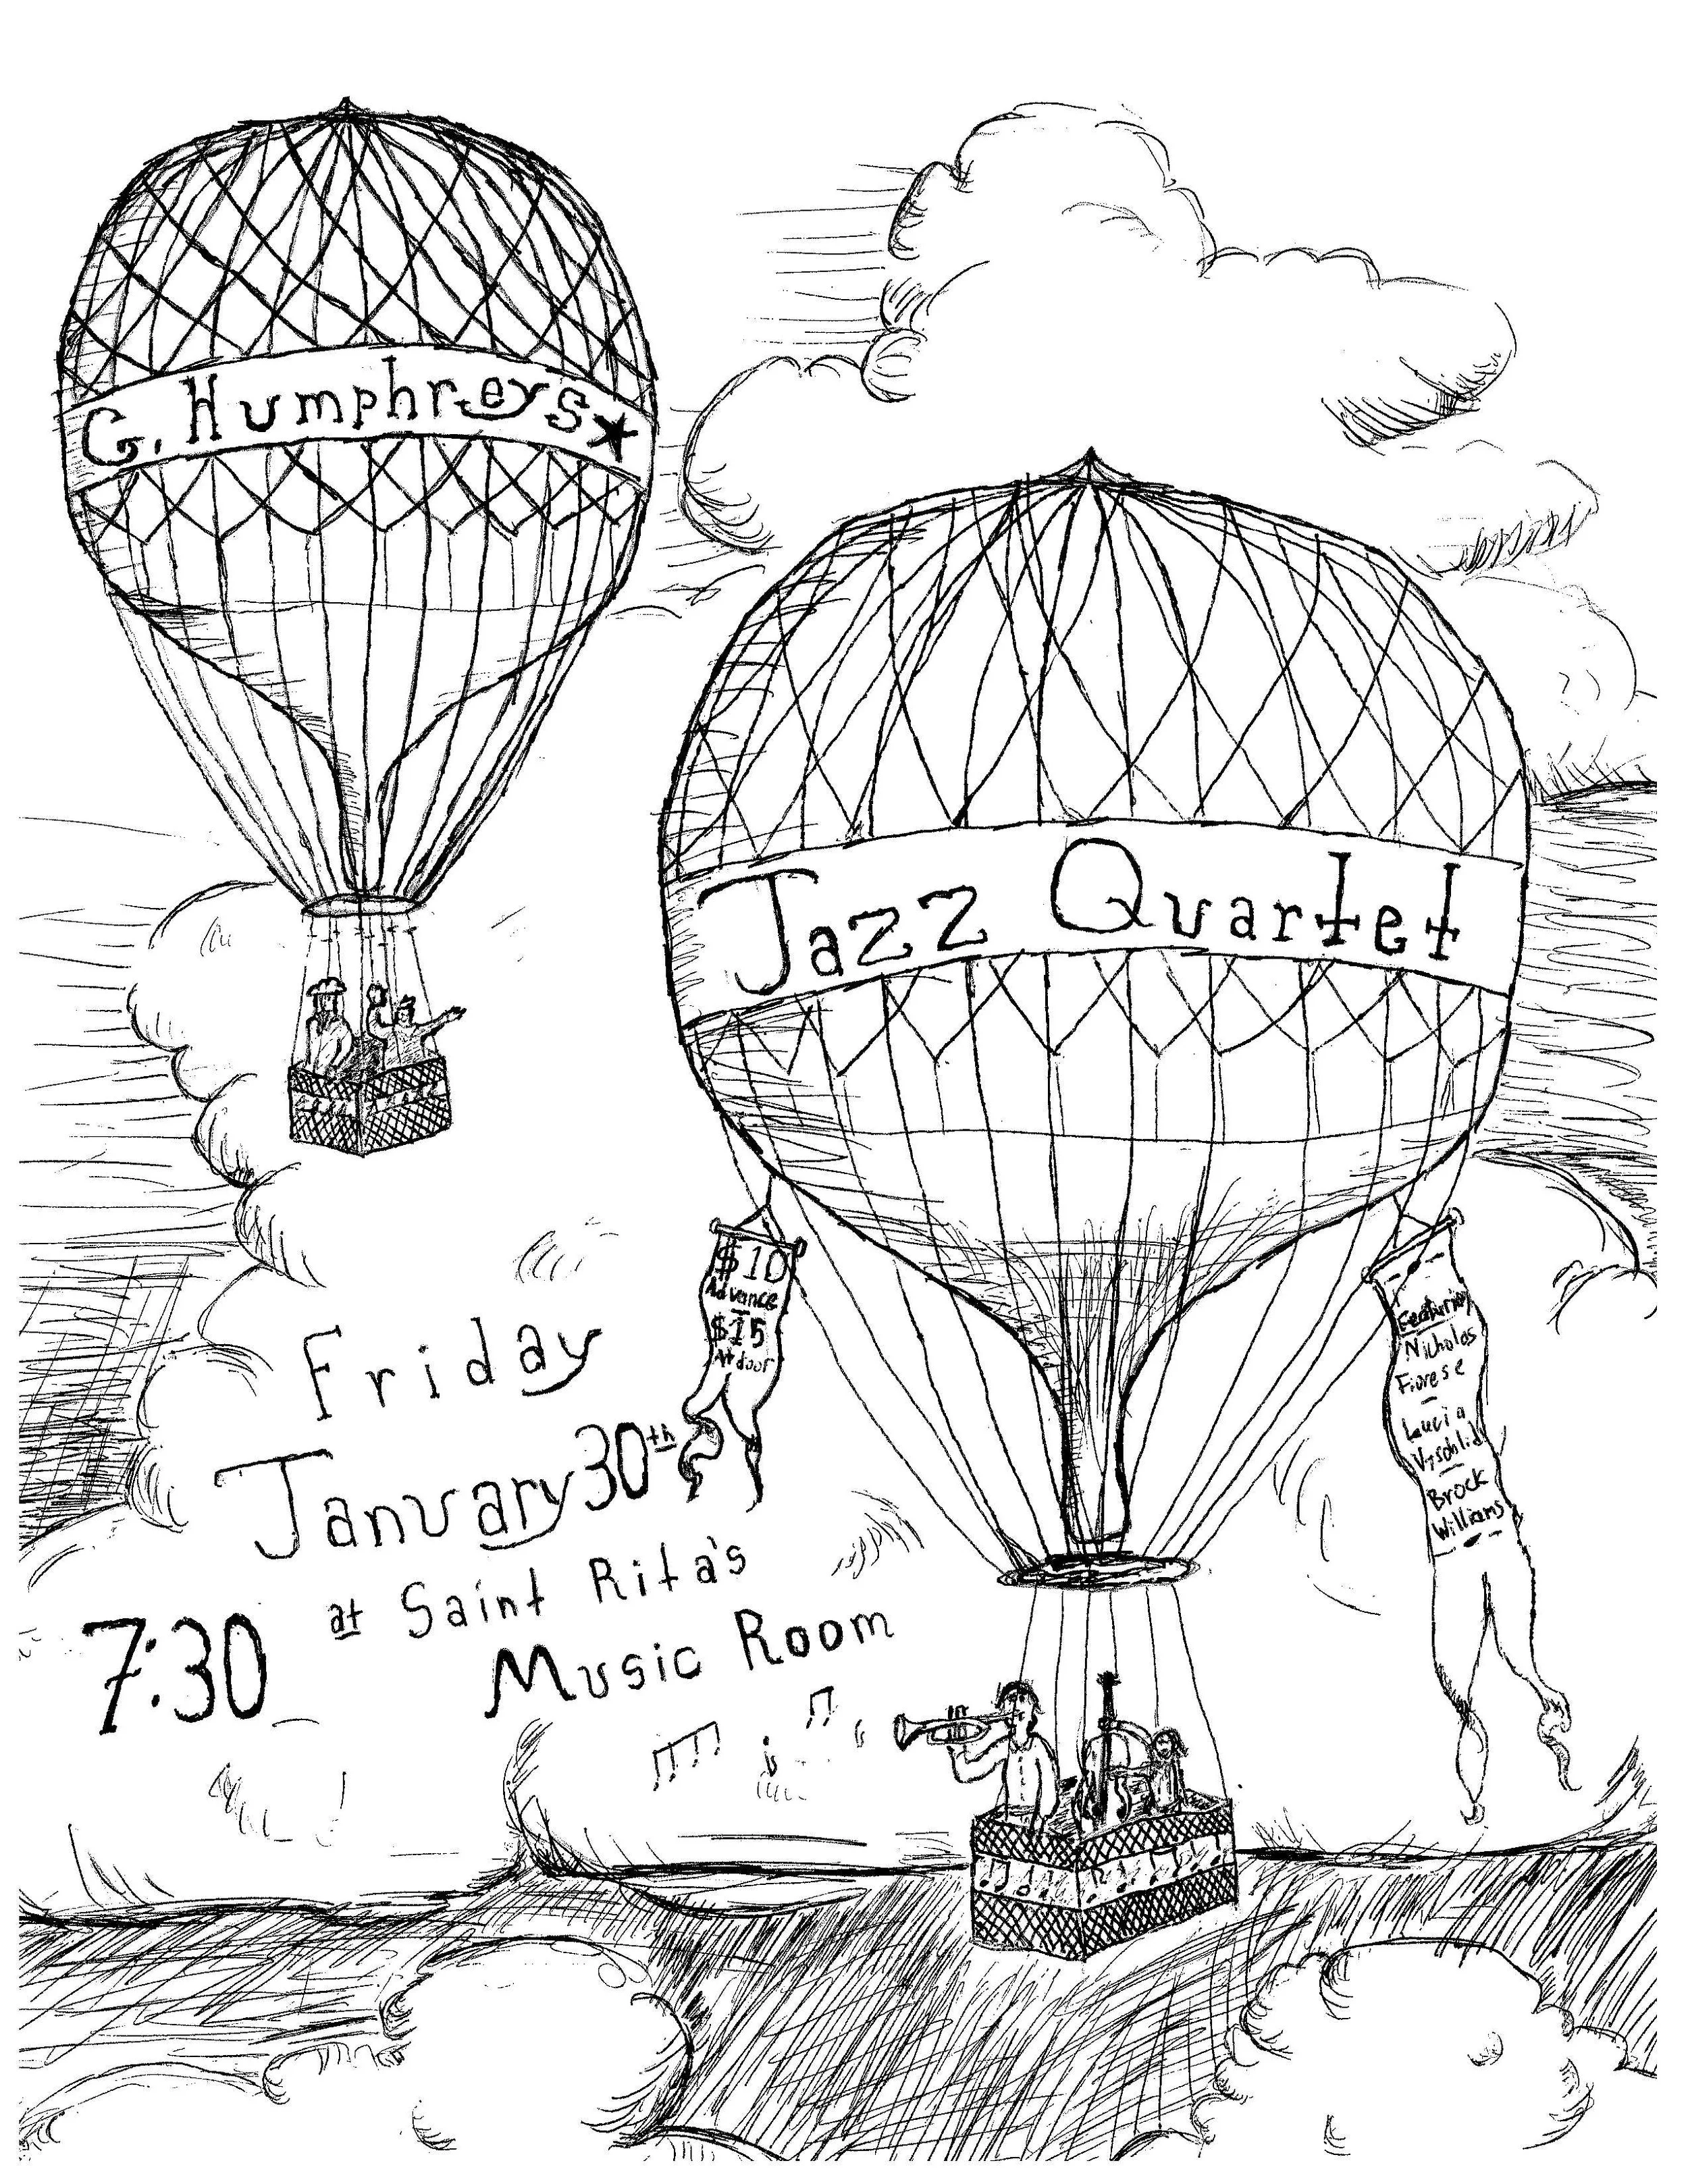 G. Humphreys
Jazz Quartet
$10
Advance
$15
At door
Featuring
Nicholas
Fiorese
Lucia
Brock
Williams
Friday
January 30th
at Saint Rita's
Music Room
7:30